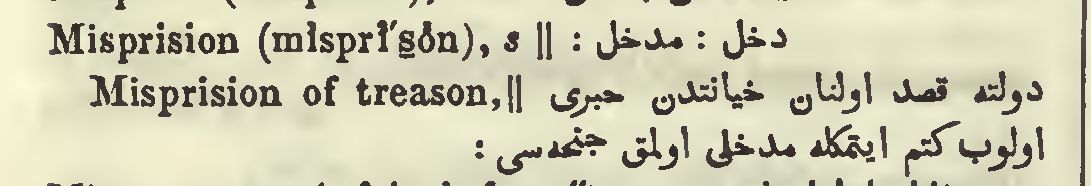 Misprision (mĭsprĭ′s̱ŏn), s || دخل : مدخل :
Misprision of treason,|| دولته قصد اولنان خیانتدن خبری
اولوب کتم ایتمکله مدخلی اولمق جنحه‌سی :